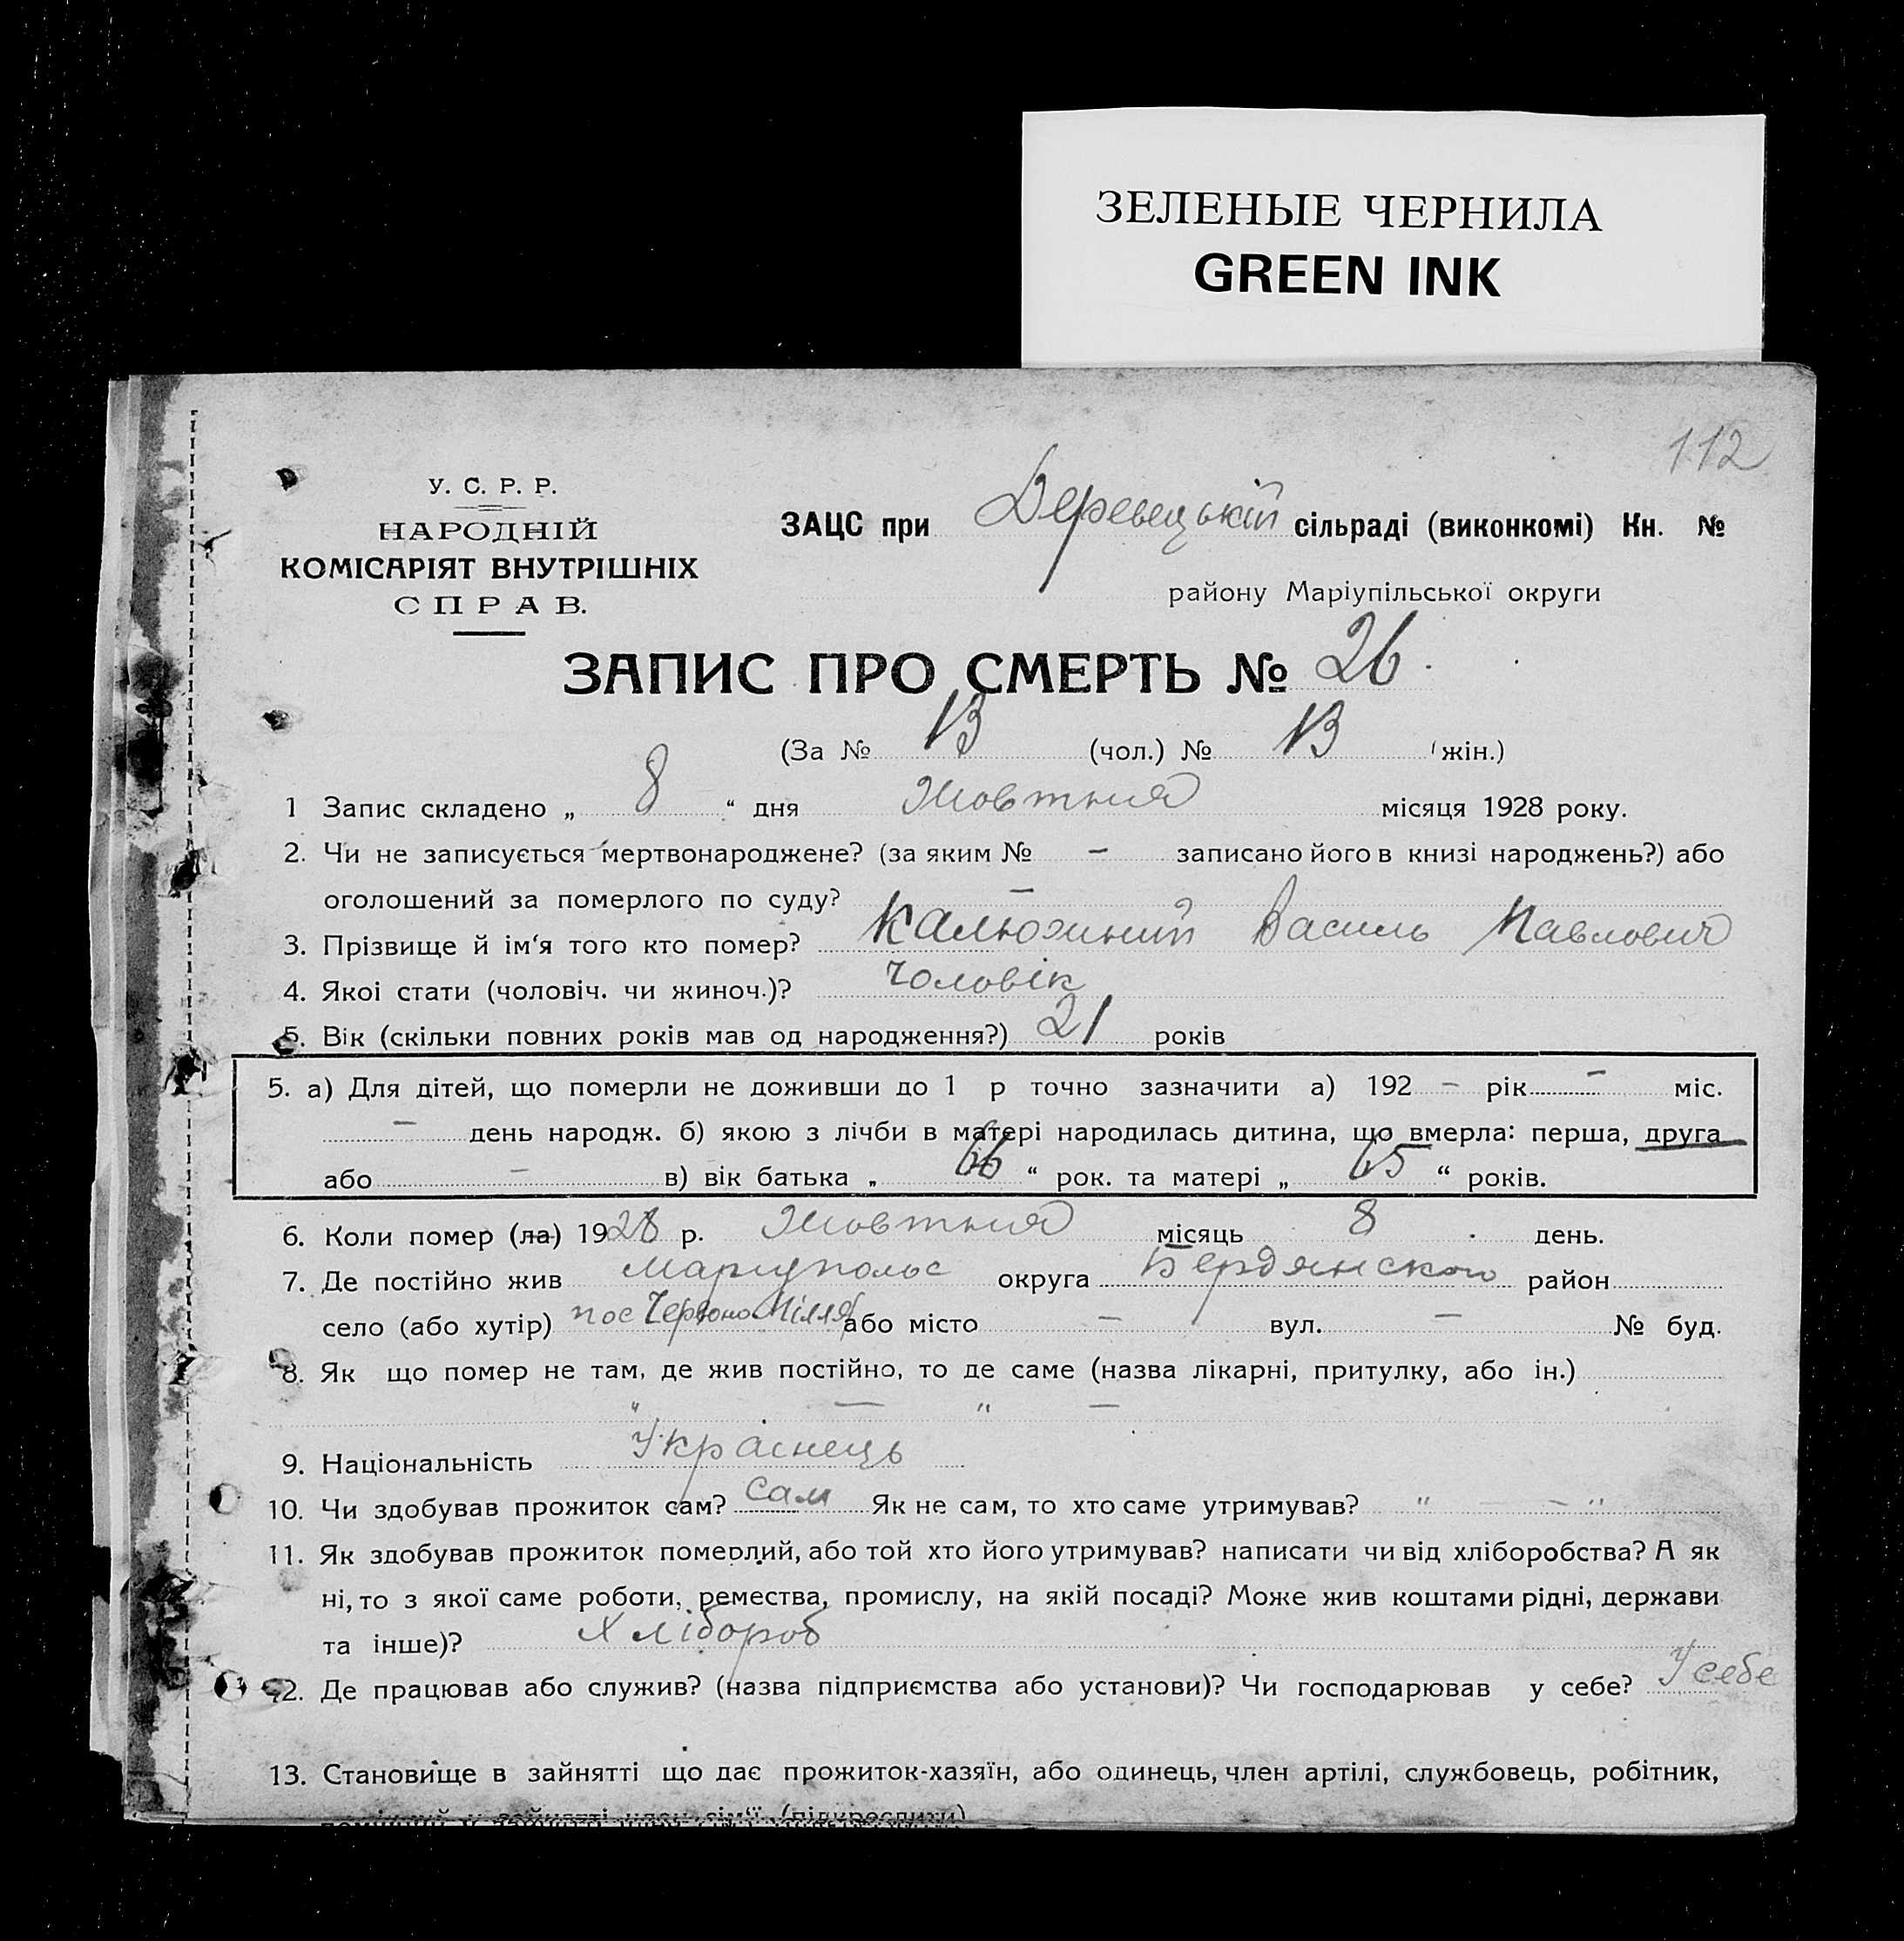 ЗЕЛЕНЫЕ ЧЕРНИЛА
GREEN INK
112
У. С. Р. Р.
НАРОДНІЙ
КОМІСАРІЯТ ВНУТРІШНІХ
СПРАВ.
ЗАЦС при Деревецькій сільраді (виконкомі) Кн. №
району Маріупільської округи
ЗАПИС ПРО СМЕРТЬ № 26.
(За № 13 (чол.) № 13 жін.)
1 Запис складено „ 8 “ дня Жовтня місяця 1928 року.
2. Чи не записується мертвонароджене? (за яким № – записано його в книзі народжень?) або
оголошений за померлого по суду? –
3. Прізвище й ім‘я того кто помер? Калюжний Василь Павлович
4. Якоі стати (чоловіч. чи жиноч.)? Чоловік
5. Вік (скільки повних років мав од народження?) 21 років
5. а) Для дітей, що померли не доживши до 1 р точно зазначити а) 192 – рік – міс.
– день народж. б) якою з лічби в матері народилась дитина, що вмерла: перша, друга
або – в) вік батька „ 66 “ рок. та матері „ 65 “ років.
6. Коли помер (ла) 1928 р. Жовтня місяць 8 день.
7. Де постійно жив Маріупольс округа Бердянского район
село (або хутір) пос Червоно Пілля або місто – вул. – № буд.
8. Як що помер не там, де жив постійно, то де саме (назва лікарні, притулку, або ін.)
" — " —
9. Національність Українець
10. Чи здобував прожиток сам? Сам Як не сам, то хто саме утримував? " – – "
11. Як здобував прожиток померлий, або той хто його утримував? написати чи від хліборобства? А як
ні, то з якої саме роботи, ремества, промислу, на якій посаді? Може жив коштами рідні, держави
та інше)? Хлібороб
12. Де працював або служив? (назва підприємства або установи)? Чи господарював у себе? У себе
13. Становище в зайнятті що дає прожиток-хазяїн, або одинець, член артілі, службовець, робітник,
зайнятті член сім'ї (підкреслити)